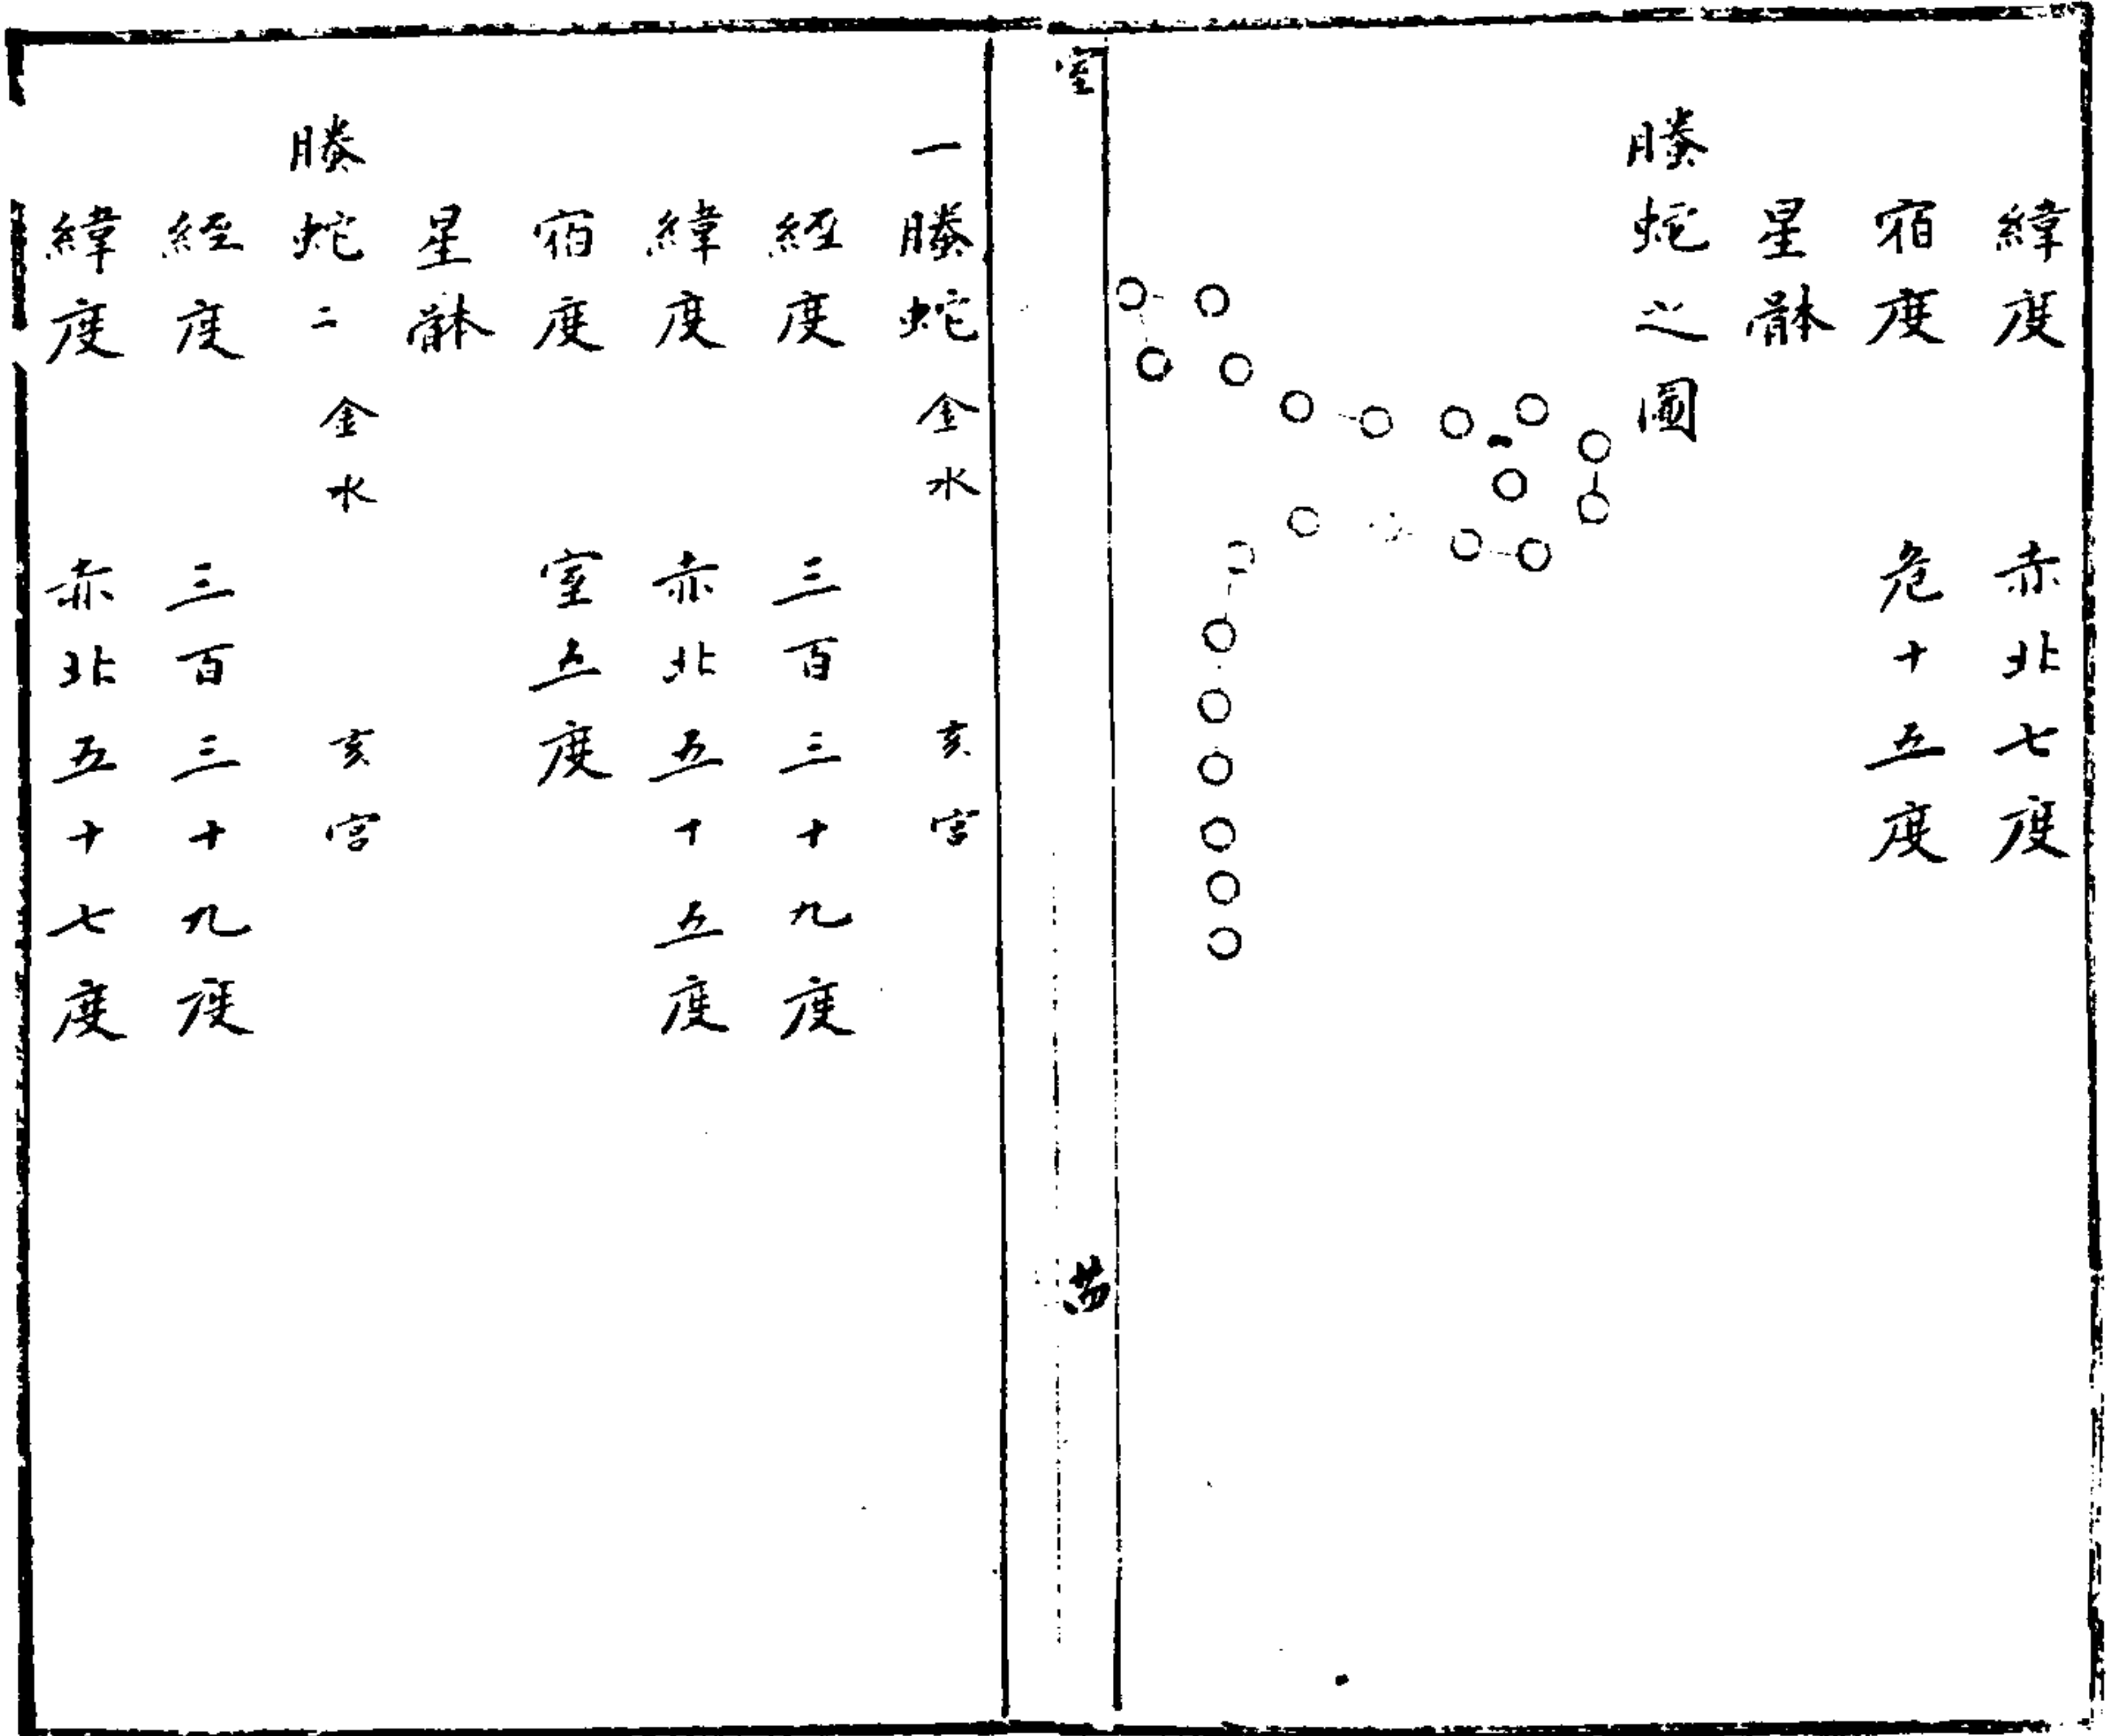 緯度 赤北七度
宿度 危十五度
星骵
螣蛇之圖
室
一螣蛇 金水 亥宮
經度 三百三十九度
緯度 赤北五十五度
宿度 室五度
星骵
螣蛇二 金水 亥宮
經度 三百三十九度
緯度 赤北五十七度